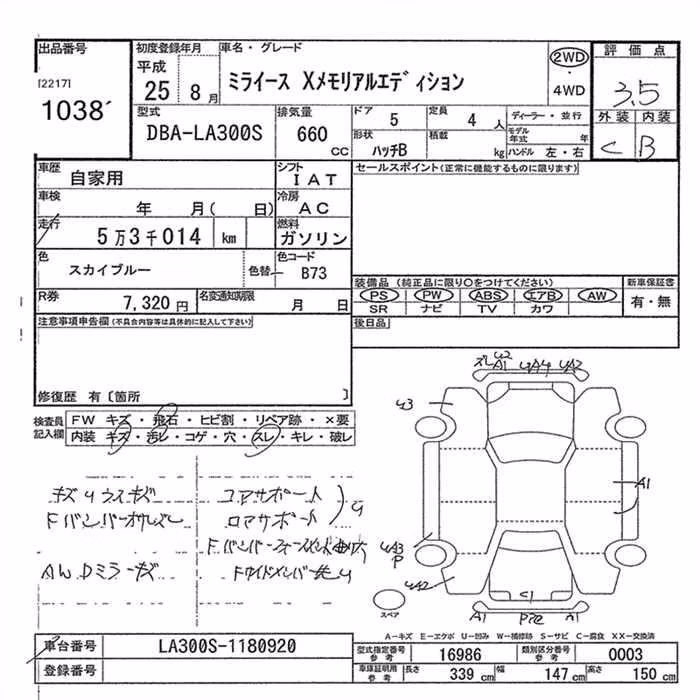 出品番号
[2217]
1038
初度登録年月
平成
25 8 月
車名・グレード
ミライース Xメモリアルエディション
2WD
・
4WD
評価点
3.5
外装 内装
C B
型式
DBA-LA300S
排気量
660
CC
ドア
5
定員
4 人
ディーラー・並行
モデル
年式 年
形状
ハッチB
積載
kg
ハンドル 左・右
車歴
自家用
シフト
IAT
セールスポイント(正常に機能するものに限ります)
車検
年 月( 日)
冷房
AC
走行
5万3千014 km
燃料
ガソリン
色
スカイブルー
色替
色コード
B73
R券
7,320 円
名変通知期限
月 日
装備品 (純正品に限り○をつけてください)
PS PW ABS エアB AW
SR ナビ TV カワ
新車保証書
有・無
注意事項申告欄(不具合内容等は具体的に記入して下さい)
後日品
修復歴 有〔箇所 〕
検査員
記入欄
FW キズ・飛石・ヒビ割・リペア跡・×要
内装 キズ・汚レ・コゲ・穴・スレ・キレ・破レ
キズ ウスキズ
Fバンパーオサレズレ
AW Dミラーキズ
コアサポート
ロアサポート
U3
A1
UA2
A1
C1
A1
A1
スペア
A-キズ E-エクボ U-凹み W-補修跡 S-サビ C-腐食 XX-交換済
車台番号
LA300S-1180920
登録番号
型式指定番号
参考
16986
類別区分番号
参考
0003
車庫証明用
参考
長さ
339 cm
幅
147 cm
高さ
150 cm